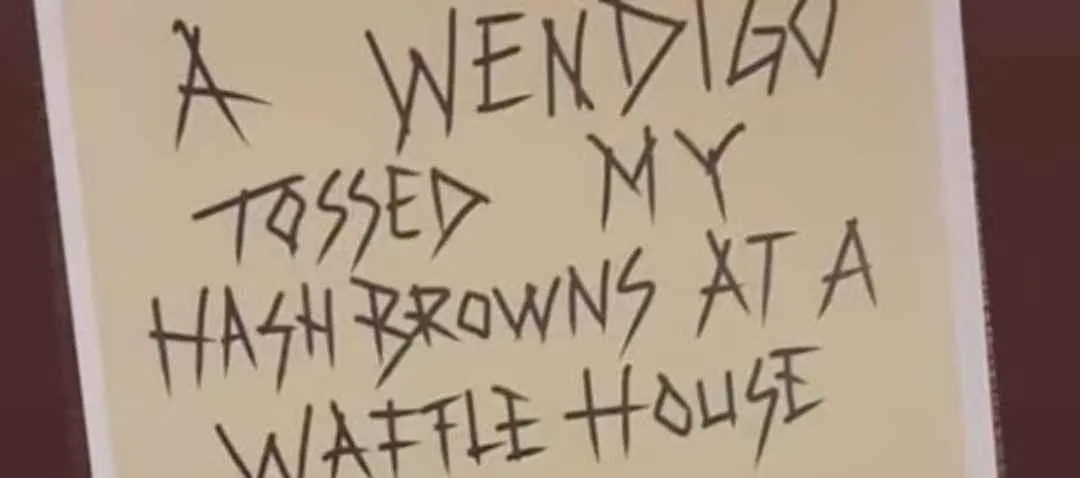 A WENDIGO
TOSSED MY
HASHBROWNS AT A
WAFFLE HOUSE